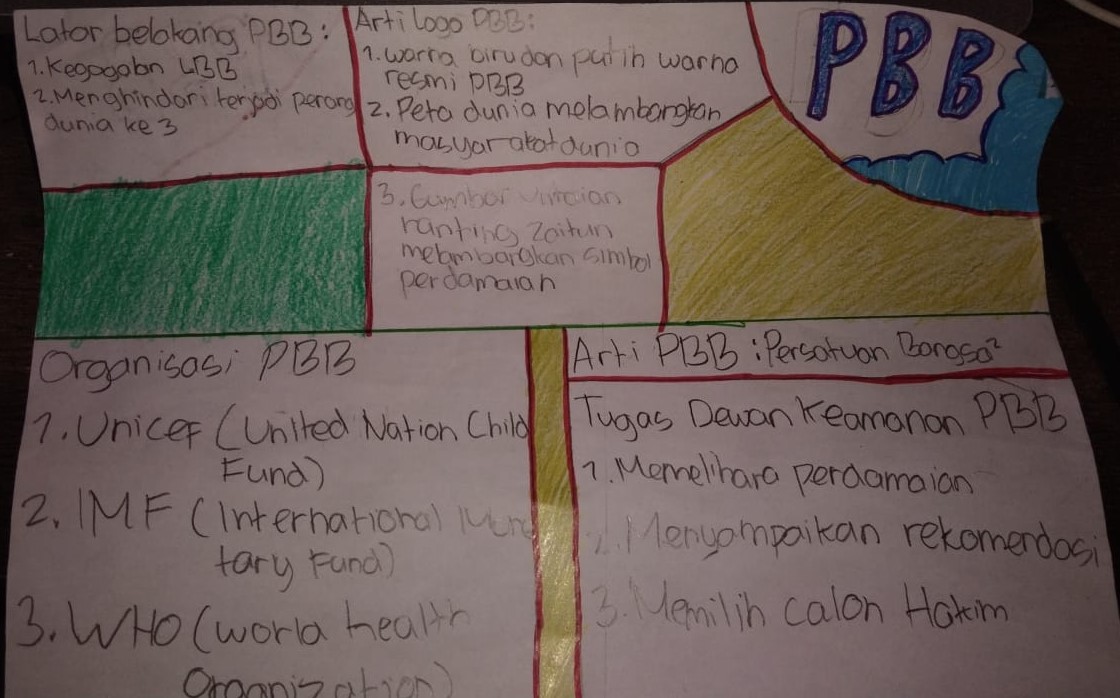 Lator belakang PBB:
1. Kegagalan LBB
2. Menghindari terjadi perang
dunia ke 3
Arti Logo PBB:
1. warna biru dan putih warna
resmi PBB
2. Peta dunia melambangkan
masyarakat dunia
3. Gambar
ranting Zaitun
melambangkan simbol
perdamaian
PBB
Organisasi PBB
1. Unicef (United Nation Child
Fund)
2. IMF (International Mone
tary Fund)
3. WHO (world health
Organization)
Arti PBB : Persatuan Bangsa²
Tugas Dewan Keamanan PBB
1. Memelihara perdamaian
2. Menyampaikan rekomendasi
3. Memilih calon Hakim